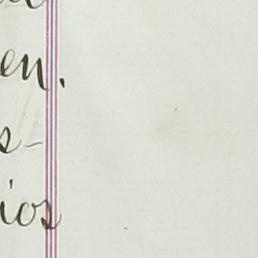 en.
s-
ios